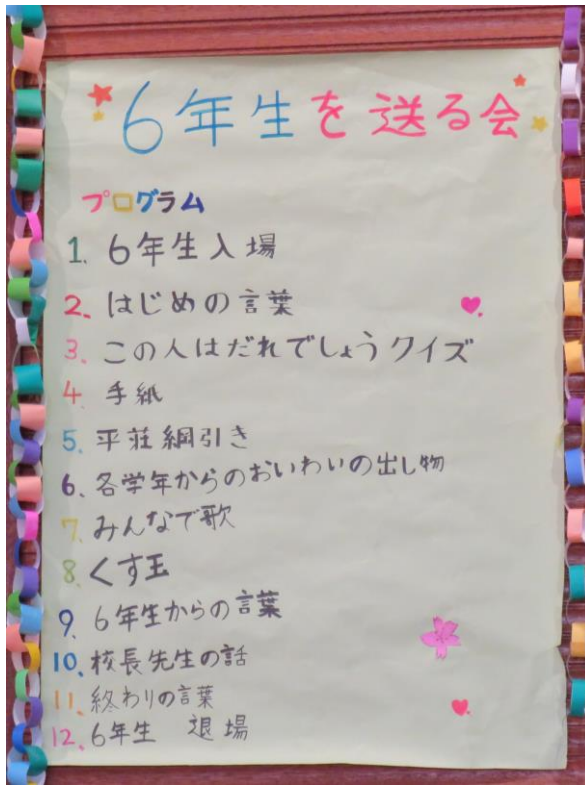 6年生を送る会
プログラム
1. 6年生入場
2、はじめの言葉
3、この人はだれでしょうクイズ
4. 手紙
5、平荘綱引き
6、各学年からのおいわいの出し物
7、みんなで歌
8、くす玉
9、6年生からの言葉
10、校長先生の話
11、終わりの言葉
12、6年生 退場